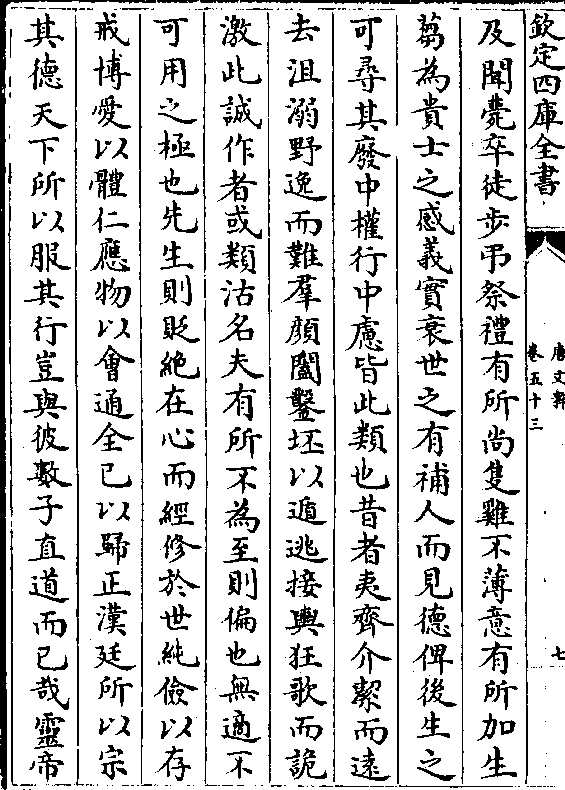 欽定四庫全書
唐文粹
卷五十三
七
及聞薨卒徒步弔祭禮有所尚隻雞不薄意有所加生
芻為貴士之感義實衰世之有補人而見德俾後生之
可尋其廢中權行中慮皆此類也昔者夷齊介絜而遠
去沮溺野逸而難羣顔闔鑿坯以遁逃接輿狂歌而詭
激此誠作者或類沽名夫有所不為至則偏也無適不
可用之極也先生則貶絶在心而經修於世純儉以存
戒博愛以體仁應物以會通全已以歸正漢廷所以宗
其德天下所以服其行豈與彼數子直道而已哉靈帝